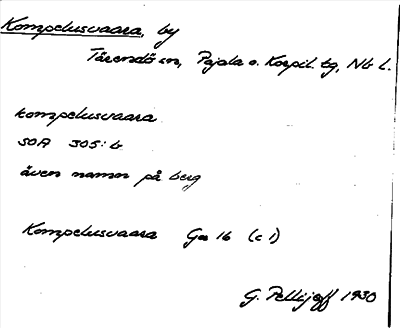 Kompelusvaara, by
Tärendö sn, Pajala o. Korpil. tg, Nb l.
kompelusvaara
SOA 305:6
även namn på berg
Kompelusvaara Ga 16 (c 1)
G. Pellijeff 1930